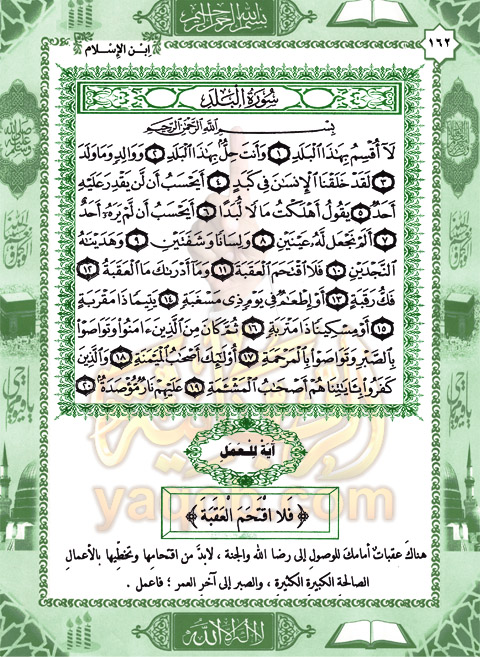 بسم الله الرحمن الرحيم
ابن الإسلام
١٦٢
سُورَةُ الْبَلَدِ
بِسْمِ اللهِ الرَّحْمَنِ الرَّحِيمِ
لَآ أُقْسِمُ بِهَٰذَا ٱلْبَلَدِ ١ وَأَنتَ حِلٌّۢ بِهَٰذَا ٱلْبَلَدِ ٢ وَوَالِدٍ وَمَا وَلَدَ
٣ لَقَدْ خَلَقْنَا ٱلْإِنسَٰنَ فِى كَبَدٍ ٤ أَيَحْسَبُ أَن لَّن يَقْدِرَ عَلَيْهِ
أَحَدٌ ٥ يَقُولُ أَهْلَكْتُ مَالًا لُّبَدًا ٦ أَيَحْسَبُ أَن لَّمْ يَرَهُۥٓ أَحَدٌ
٧ أَلَمْ نَجْعَل لَّهُۥ عَيْنَيْنِ ٨ وَلِسَانًا وَشَفَتَيْنِ ٩ وَهَدَيْنَٰهُ
ٱلنَّجْدَيْنِ ١٠ فَلَا ٱقْتَحَمَ ٱلْعَقَبَةَ ١١ وَمَآ أَدْرَىٰكَ مَا ٱلْعَقَبَةُ ١٢
فَكُّ رَقَبَةٍ ١٣ أَوْ إِطْعَٰمٌ فِى يَوْمٍ ذِى مَسْغَبَةٍ ١٤ يَتِيمًا ذَا مَقْرَبَةٍ
١٥ أَوْ مِسْكِينًا ذَا مَتْرَبَةٍ ١٦ ثُمَّ كَانَ مِنَ ٱلَّذِينَ ءَامَنُوا۟ وَتَوَاصَوْا۟
بِٱلصَّبْرِ وَتَوَاصَوْا۟ بِٱلْمَرْحَمَةِ ١٧ أُو۟لَٰٓئِكَ أَصْحَٰبُ ٱلْمَيْمَنَةِ ١٨ وَٱلَّذِينَ
كَفَرُوا۟ بِـَٔايَٰتِنَا هُمْ أَصْحَٰبُ ٱلْمَشْـَٔمَةِ ١٩ عَلَيْهِمْ نَارٌ مُّؤْصَدَةٌۢ ٢٠
آيَةٌ لِلْعَمَلِ
﴿ فَلَا اقْتَحَمَ الْعَقَبَةَ ﴾
هناكَ عقباتٌ أمامكَ للوصولِ إلى رضا الله والجنة ، لابدَّ من اقتحامِها وتخطِّيها بالأعمالِ
الصالحةِ الكبيرةِ الكثيرةِ ، والصبرِ إلى آخرِ العمر ؛ فاعمل .
لا إله إلا الله